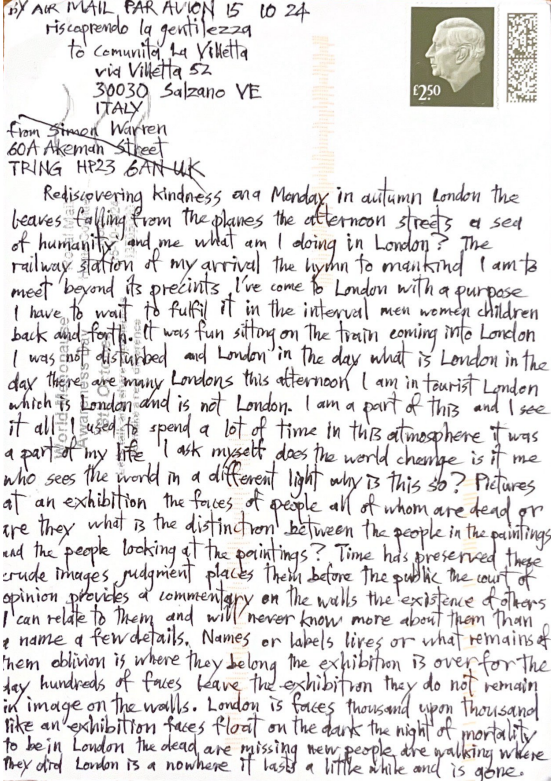 BY AIR MAIL PAR AVION 15 10 24
riscoprendo la gentilezza
to comunita La Villetta
via Villetta 52
30030 Salzano VE
ITALY
£2.50
from Simon Warren
60A Akeman Street
TRING HP23 6AN UK
Rediscovering kindness on a Monday in autumn London the
leaves falling from the planes the afternoon streets a sea
of humanity and me what am I doing in London? The
railway station of my arrival the hymn to mankind I am to
meet beyond its precints I've come to London with a purpose
I have to wait to fulfil it in the interval men women children
back and forth. It was fun sitting on the train coming into London
I was not disturbed and London in the day what is London in the
day there are many Londons this afternoon I am in tourist London
which is London and is not London. I am a part of this and I see
it all I used to spend a lot of time in this atmosphere it was
a part of my life I ask myself does the world change is it me
who sees the world in a different light why is this so? Pictures
at an exhibition the faces of people all of whom are dead or
are they what is the distinction between the people in the paintings
and the people looking at the paintings? Time has preserved these
crude images judgment places them before the public the court of
opinion provides a commentary on the walls the existence of others
I can relate to them and will never know more about them than
a name a few details. Names or labels lives or what remains of
them oblivion is where they belong the exhibition is over for the
day hundreds of faces leave the exhibition they do not remain
in image on the walls. London is faces thousand upon thousand
like an exhibition faces float on the dark the night of mortality
to be in London the dead are missing new people are walking where
they did London is a nowhere it lasts a little while and is gone.